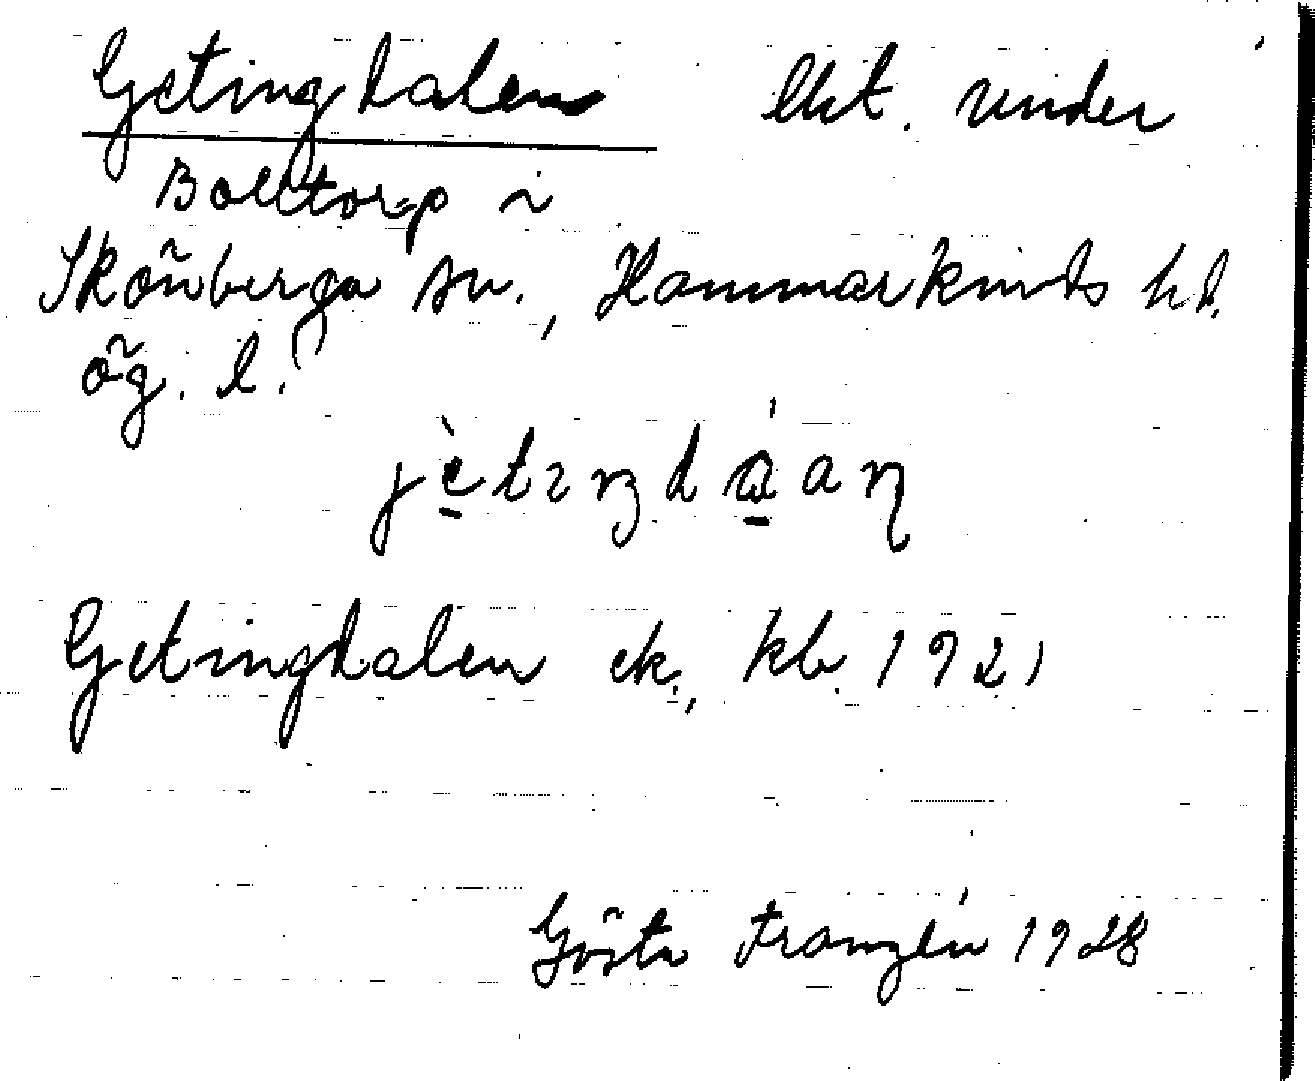 Getingdalen lht. under
Bolltorp i
Skönberga sn., Hammarkinds hd.
Ög. l.
Getingdalen ek., kb. 1921
Gösta Franzén 1928